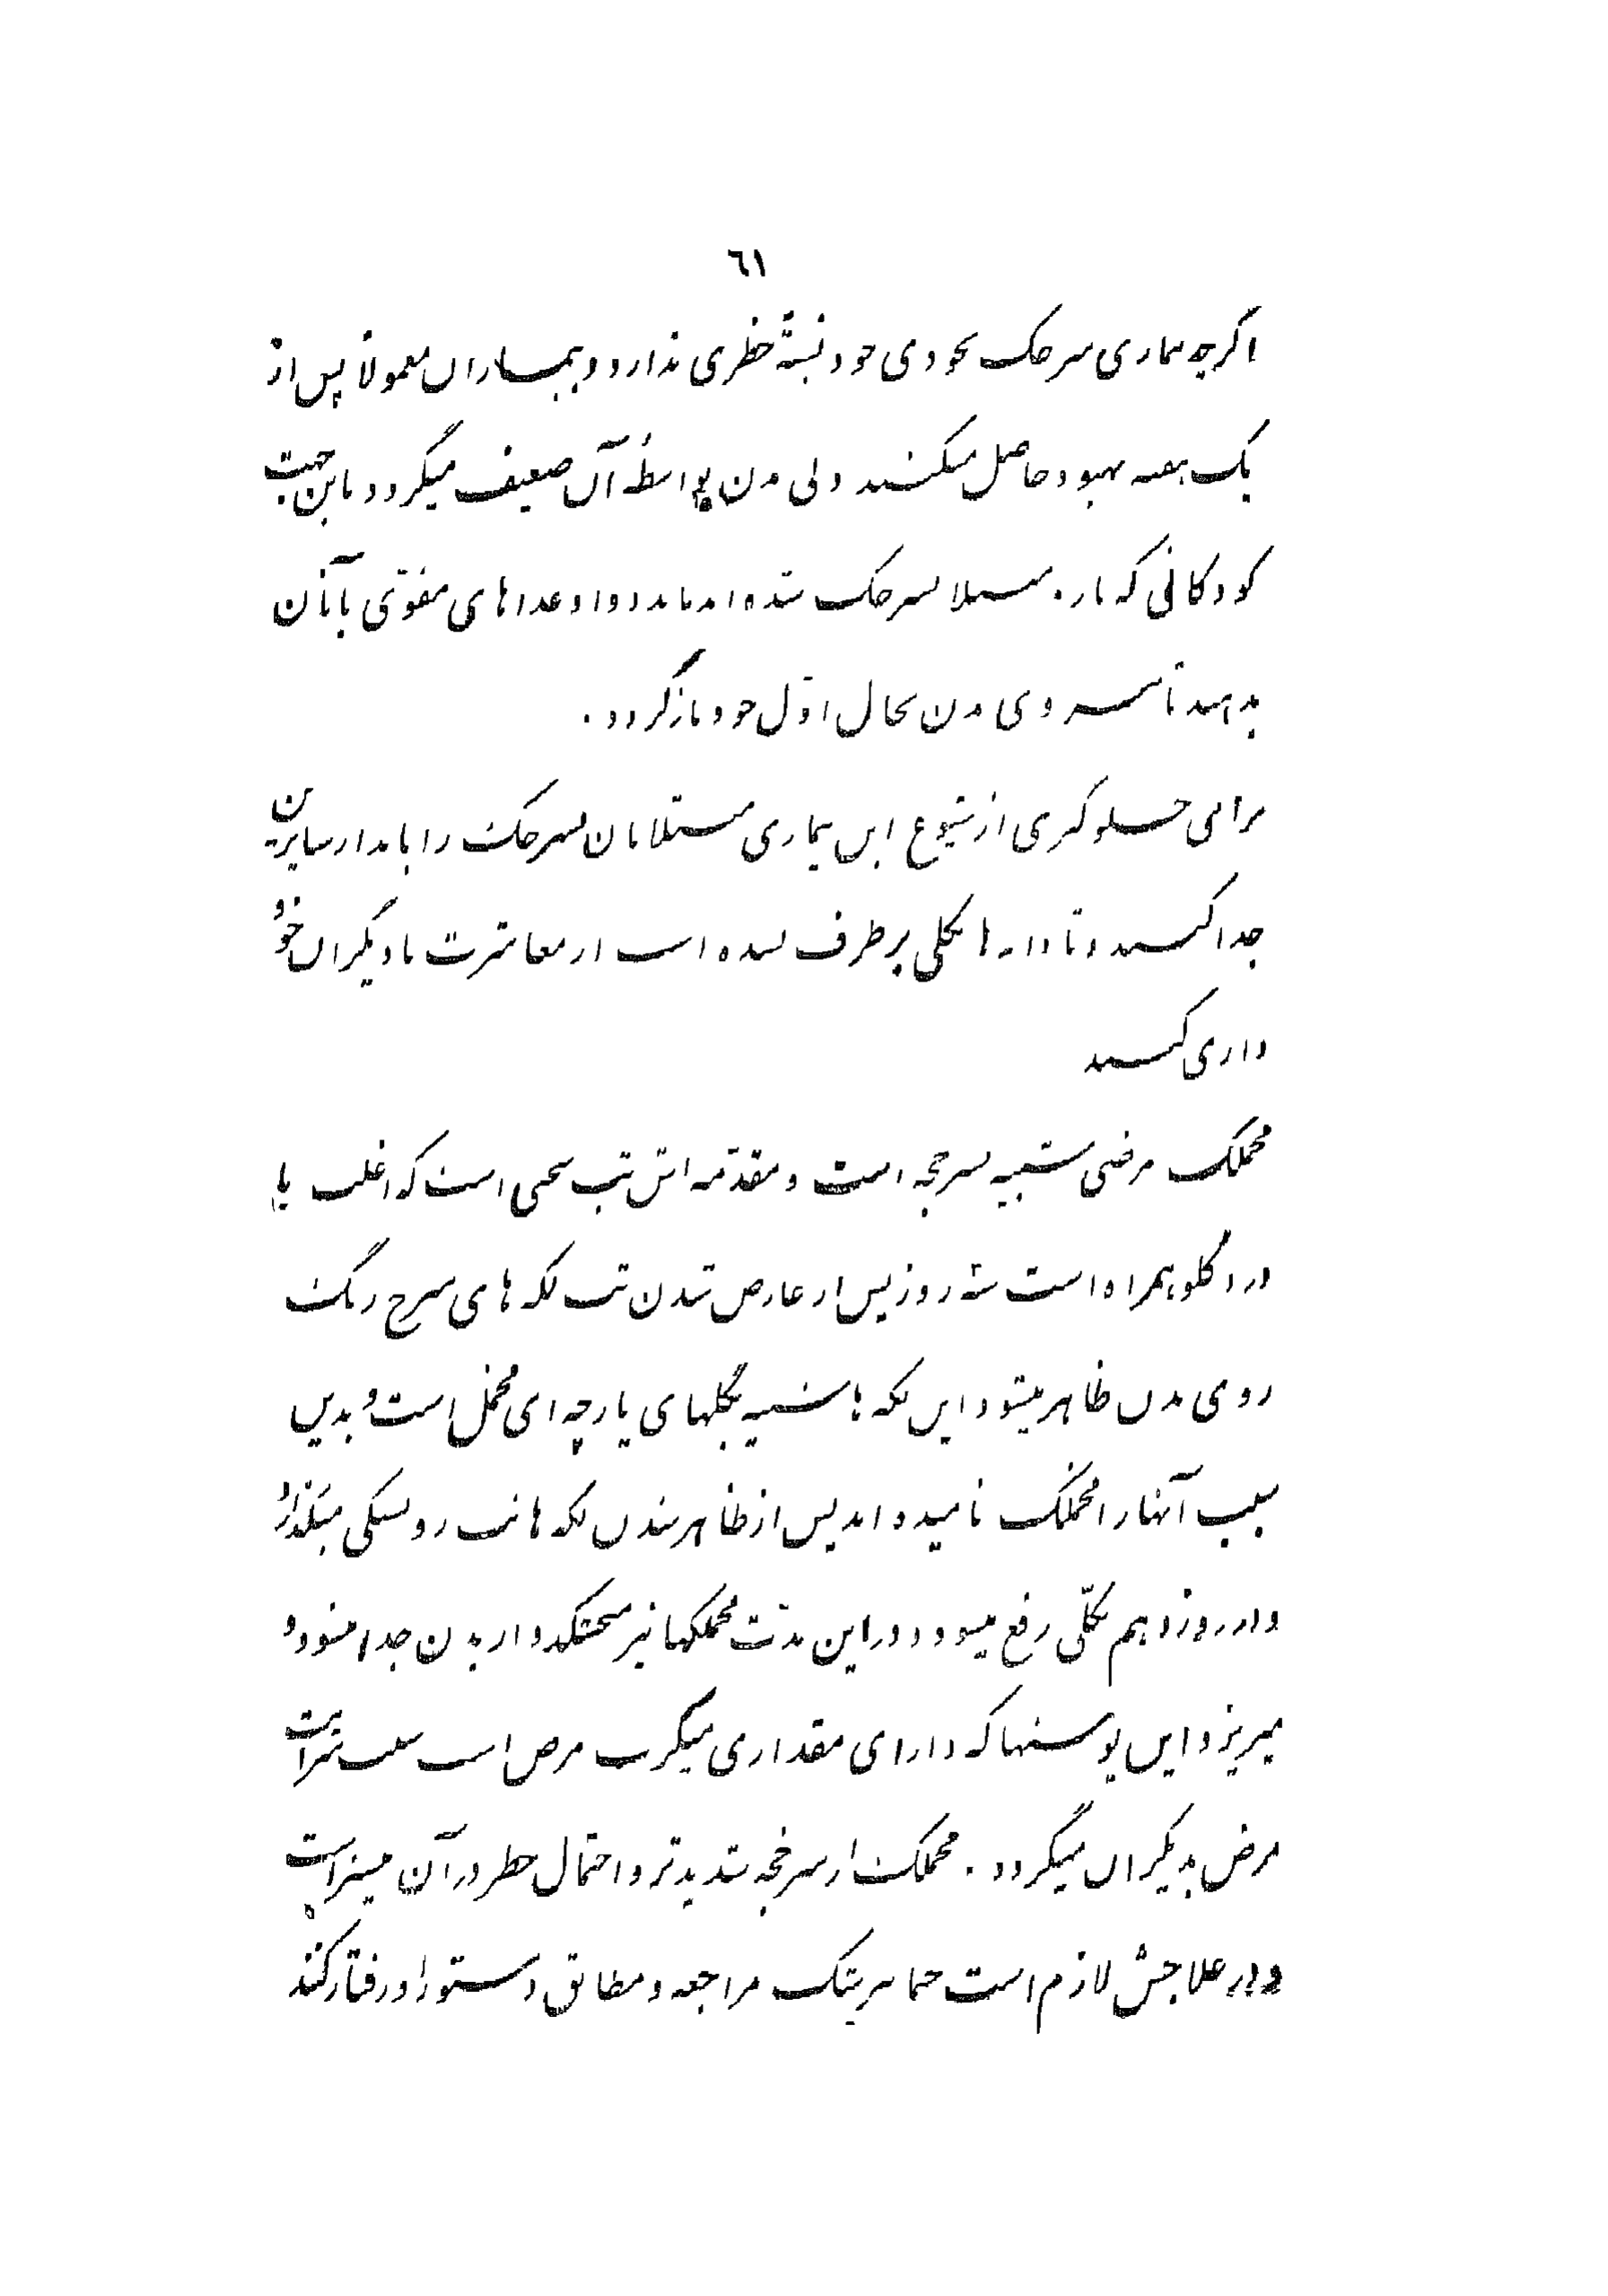 ٦١
اگرچه بیماری سرخک بخودی خود نسبةً خطری ندارد و بیماران معمولاً پس از
یک هفته بهبود حاصل میکنند ولی بدن بواسطهٔ آن ضعیف میگردد باین جهت
کودکانی که تازه مبتلا بسرخک شده‌اند باید دوا و غذاهای مقوّی بآنان
بدهند تا نیروی بدن بحال اوّل خود بازگردد.
برای جلوگیری از شیوع این بیماری مبتلایان بسرخک را باید از سایرین
جدا کنند و تا دانه‌ها بکلی برطرف نشده است از معاشرت با دیگران خود
داری کنند
مخملک مرضی شبیه بسرخجه است و مقدّمه‌اش تب سختی است که اغلب با
درد گلو همراه است سه روز پس از عارض شدن تب لکه‌های سرخ رنگ
روی بدن ظاهر میشود این لکه‌ها شبیه بگلهای پارچه‌ای مخمل است و بدین
سبب آنها را مخملک نامیده‌اند پس از ظاهر شدن لکه‌ها تب رو بسبکی میگذارد
و در روز دهم بکلّی رفع میشود و در این مدّت مخملکها نیز میخشکد و از بدن جدا میشود و
میریزد این پوستها که دارای مقداری میکرب مرض است سبب سرایت
مرض بدیگران میگردد. مخملک از سرخجه شدیدتر و احتمال خطر در آن بیشتر است
و در علاجش لازم است حتما بپزشک مراجعه و مطابق دستور او رفتار کنند